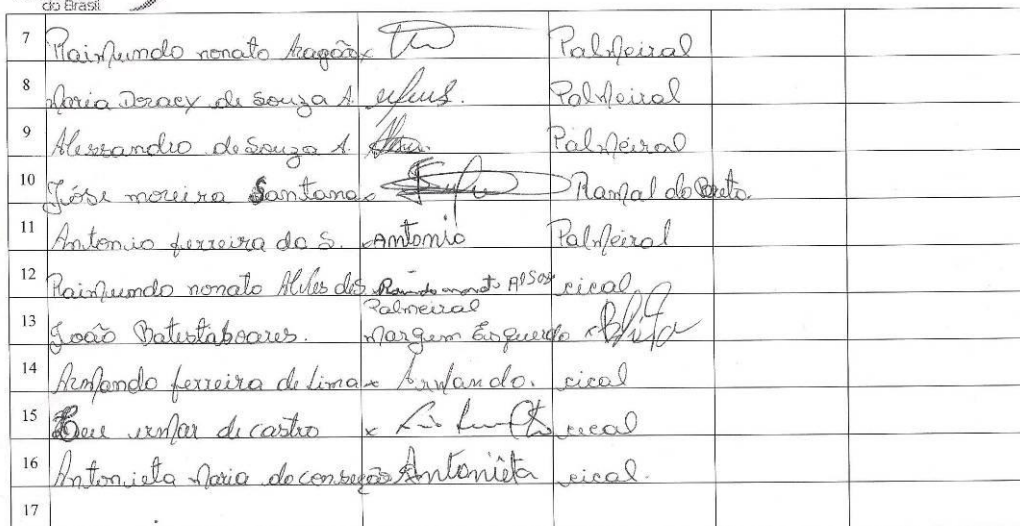 do Brasil
7 Raimundo nonato Aragão x Palmeiral
8 Maria Doracy de Souza A. Palmeiral
9 Alessandro de Souza A. Palmeiral
10 Jóse moreira Santana x Ramal do Preto.
11 Antonio ferreira da S. x Antonio Palmeiral
12 Raimundo nonato Alves dos cical
Palmeiral
13 João Batista soares. Margem Esquerdo x
14 Armando ferreira de lima x Armando. cical
15 ermar de castro x cical
16 Antonieta Maria da conseção Antonieta cical.
17